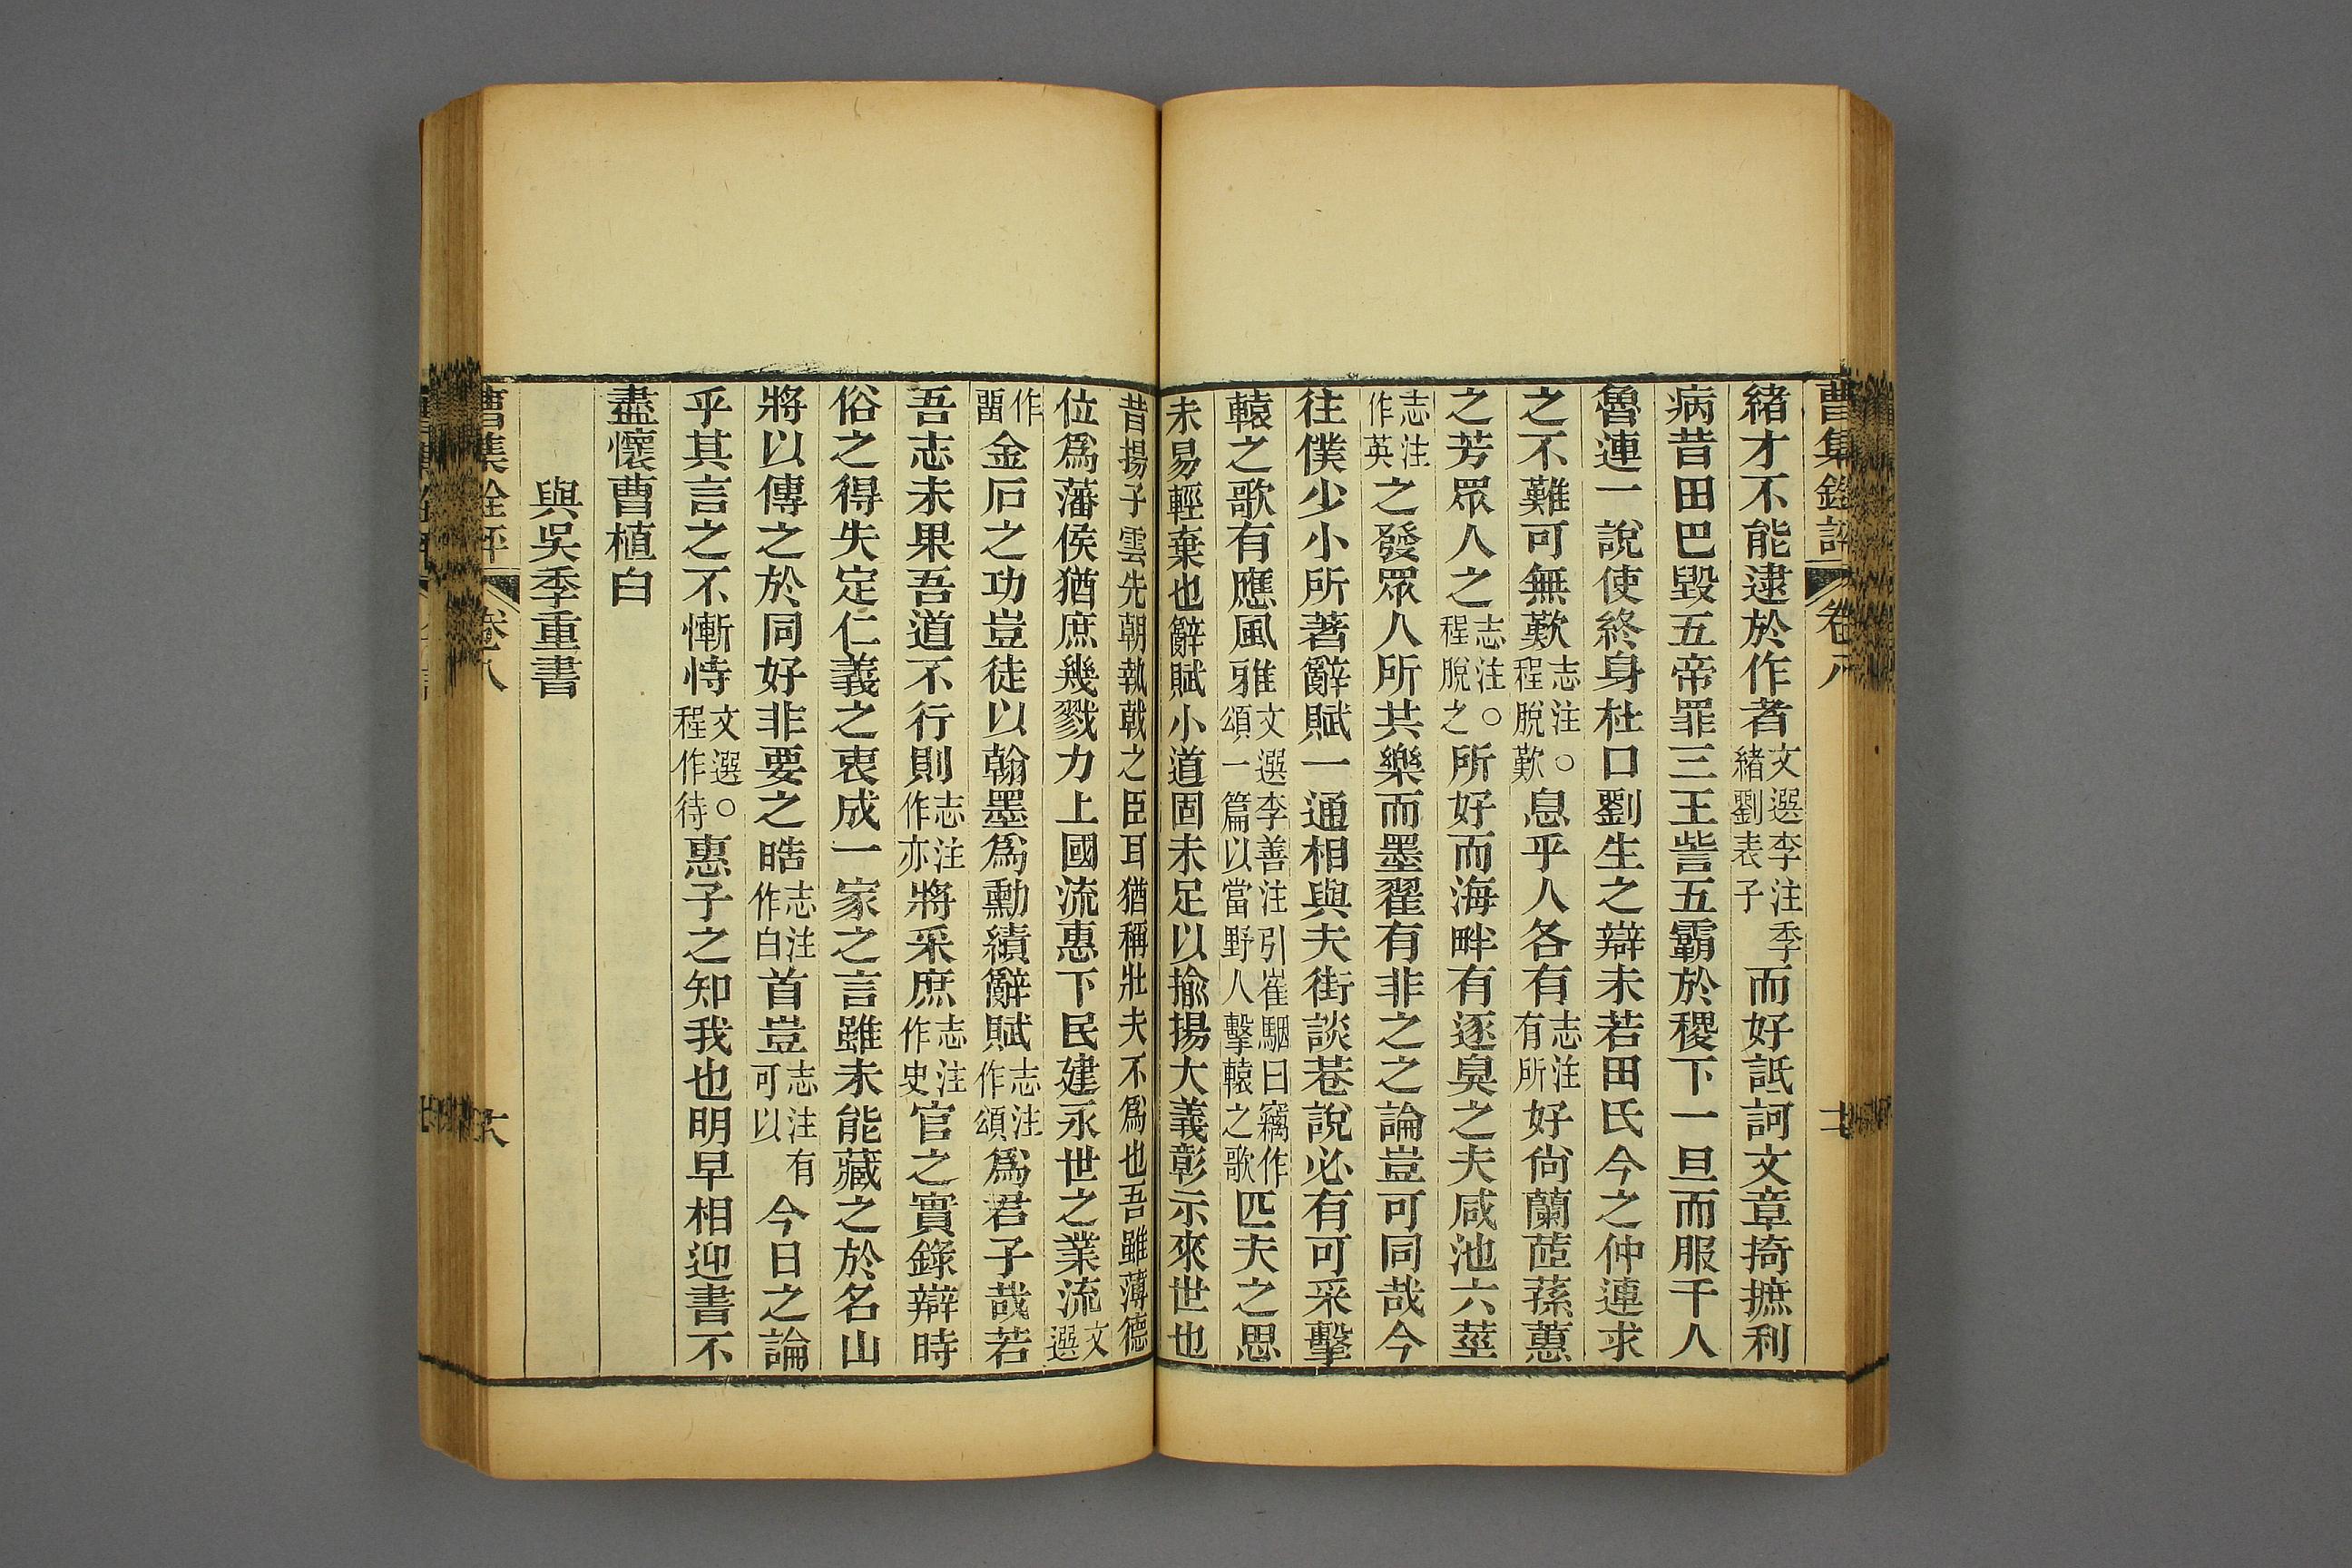 曹集銓評 卷八 七
緒才不能逮於作者文選李注季緒劉表子而好詆訶文章掎摭利
病昔田巴毀五帝罪三王訾五霸於稷下一旦而服千人
魯連一說使終身杜口劉生之辯未若田氏今之仲連求
之不難可無歎志注○程脫歎息乎人各有志注有所好尚蘭茝蓀蕙
之芳眾人之志注○程脫之所好而海畔有逐臭之夫咸池六莖
志注作英之發眾人所共樂而墨翟有非之之論豈可同哉今
往僕少小所著辭賦一通相與夫街談巷說必有可采擊
轅之歌有應風雅文選李善注引崔駰曰竊作頌一篇以當野人擊轅之歌匹夫之思
未易輕棄也辭賦小道固未足以揄揚大義彰示來世也
昔揚子雲先朝執戟之臣耳猶稱壯夫不爲也吾雖薄德
位爲藩侯猶庶幾戮力上國流惠下民建永世之業流文選
作畱金石之功豈徒以翰墨爲勳績辭賦志注作頌爲君子哉若
吾志未果吾道不行則志注作亦將采庶志注作史官之實錄辯時
俗之得失定仁義之衷成一家之言雖未能藏之於名山
將以傳之於同好非要之皓志注作白首豈志注有可以今日之論
乎其言之不慚恃文選○程作待惠子之知我也明早相迎書不
盡懷曹植白
與吳季重書
曹集銓評 卷八